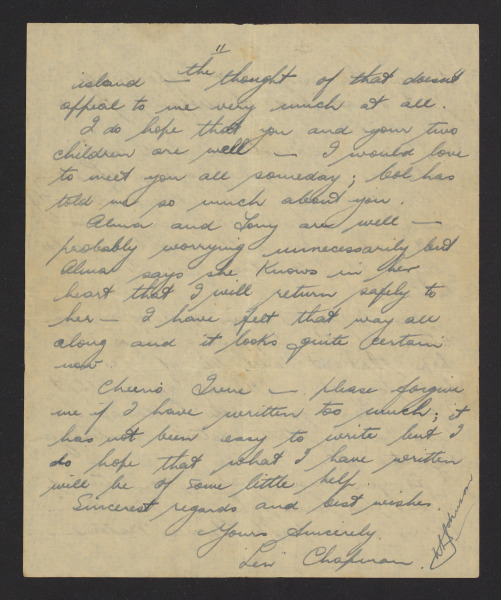 11
island — the thought of that doesn't
appeal to me very much at all.
I do hope that you and your two
children are well — I would love
to meet you all someday; bob has
told me so much about you.
Alma and Tony are well —
probably worrying unnecessarily but
Alma says she knows in her
heart that I will return safely to
her — I have felt that way all
along and it looks quite certain
now.
Cheerio Irene — please forgive
me if I have written too much; it
has not been easy to write but I
do hope that what I have written
will be of some little help.
Sincerest regards and best wishes.
Yours Sincerely.
Len Chapman.
Johnson